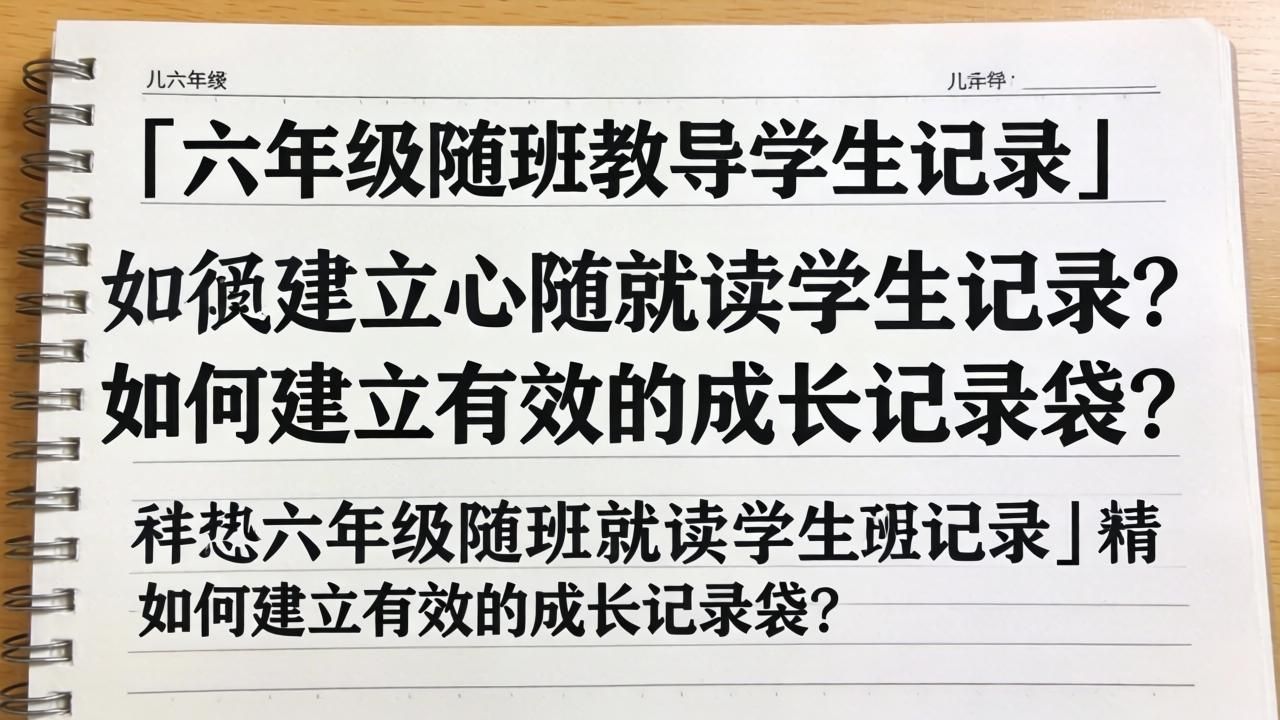 儿六年级
「六年级随班教导学生记录」
如建立心随就读学生记录?
如何建立有效的成长记录袋?
六年级随班就读学生记录」精
如何建立有效的成长记录袋?